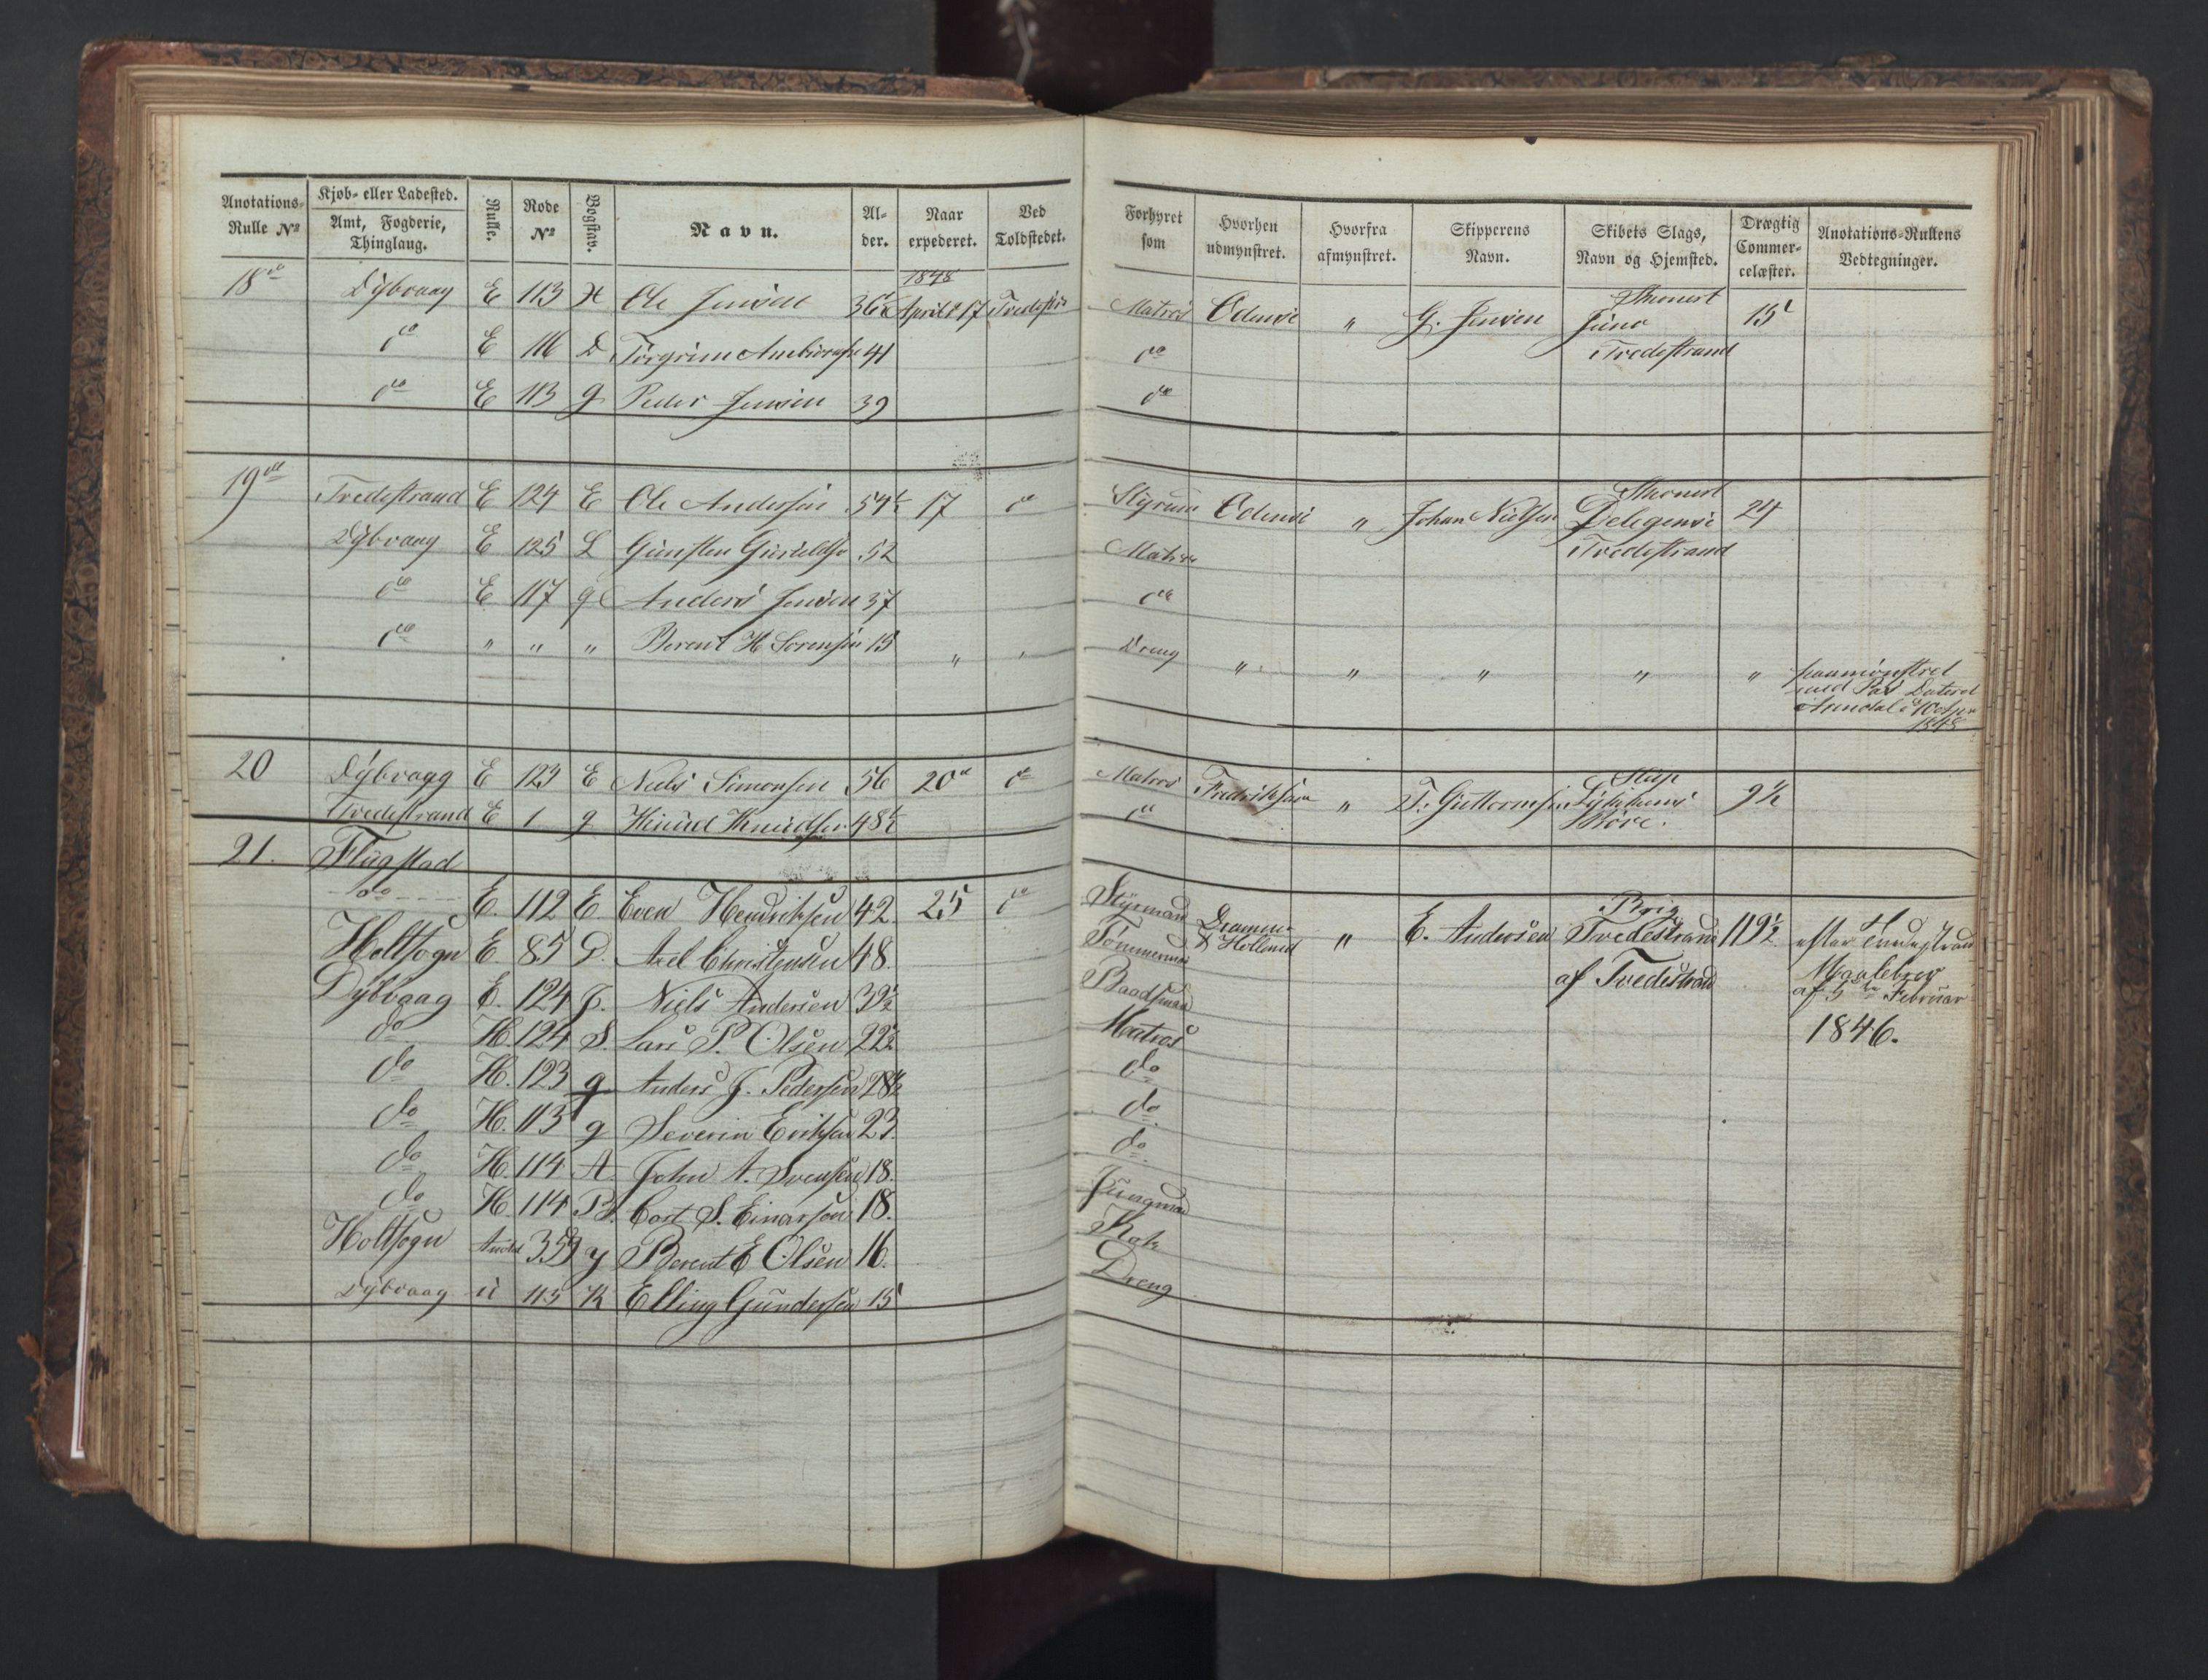 Anotations-Rulle No | Kjøb- eller Ladested. Amt, Fogderie, Thinglaug. | Rulle. | Rode No | Bogstav. | Navn. | Al-der. | Naar expederet. | Ved Toldstedet. | Forhyret som | Hvorhen udmynstret. | Hvorfra afmynstret. | Skipperens Navn. | Skibets Slags, Navn og Hjemsted. | Drægtig Commer-celæster. | Anotations-Rullens Vedtegninger.
1848
18 | Dybvaag | E | 113 | H | Ole Jensen | 36½ | April 17 | | Matros | Odense | " | G. Jensen | Skonert Juno | 15
do | E | 116 | D | Torgrim | 41 | do | Tvedestrand
do | E | 113 | g | Peder Jensen | 39 | do
19 | Tvedestrand | E | 124 | E | Ole Andersen | 54½ | 17 | do | Styrm | Odense | " | Johan Nielsen | Skonert | 24
Dybvaag | E | 125 | L | Gunsten | 52 | Matros | Tvedestrand
do | E | 117 | g | Anders Jensen | 37 | do
do | " | " | " | Berent H Sorensen | 15 | " | " | Dreng | " | " | " | " | " | paamønstret
med Pas Dateret
Arendal 10 Apr
1848
20 | Dybvagg | E | 123 | E | Niels Simonsen | 56 | 20 | do | Matros | " | T. Guttormsen | Slup | 9½
Tvedestrand | E | 1 | g | Knud Knudsen | 48½ | do
21. | Flagstad
do | E. | 112 | E | Even Hendriksen | 42. | 25 | do | Styrmand | Dramm. & Holland | " | E. Andersen | Brig Tvedestrand | 119½ | efter
Holtsogn | E. | 85 | D. | Axel Christensen | 48. | Tømmermd | af Tvedestrand | Maalebrev
Dybvaag | E. | 124 | F. | Niels Andersen | 39½ | Baadsmand | af 5te Februar
do | H. | 124 | S. | Lars P. Olsen | 22½ | Matros | 1846.
do | H. | 123 | g | Anders J. Pedersen | 28½ | do
do | H. | 113 | g | Severin Eriksen | 23. | do
do | H. | 114 | A. | John A. Svensen | 18. | do
do | H. | 114 | B. | S. Einarsen | 18. | Jungmd
Holtsogn | | 359 | y | Berent E Olsen | 16. | Kok
Dybvaag | U | 113 | K | Elling Gundersen | 15 | Dreng